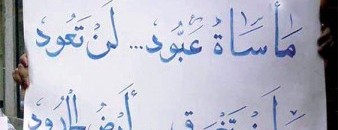 مَأْسَاةُ عَبُّود... لَنْ تَعُود
وَلَنْ تَغْرَقَ .. أَرْضُ الْجُرُود